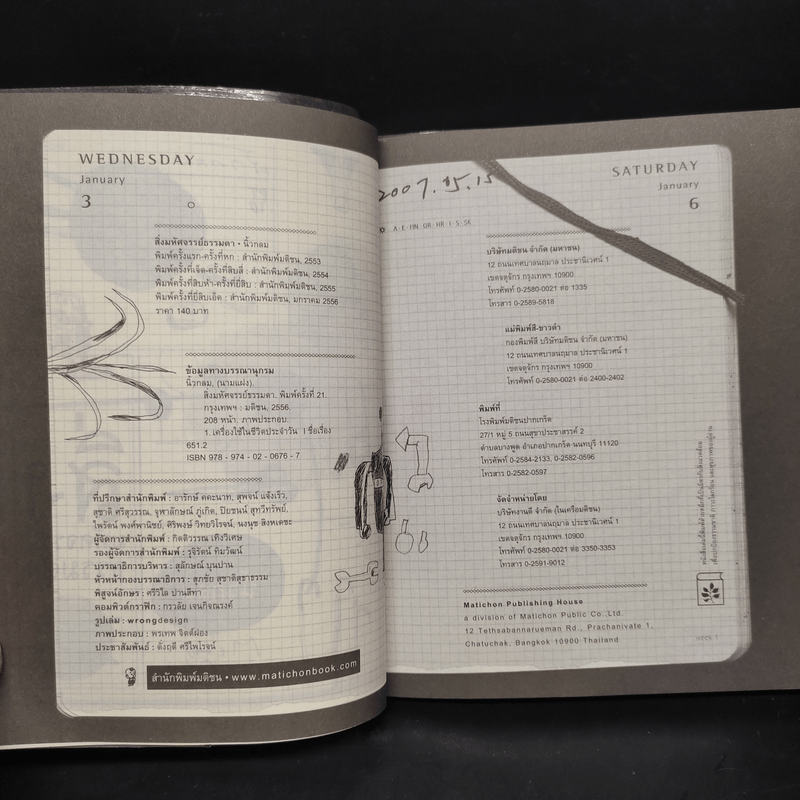 WEDNESDAY
January
3
สิ่งมหัศจรรย์ธรรมดา • นิ้วกลม
พิมพ์ครั้งแรก-ครั้งที่หก : สำนักพิมพ์มติชน, 2553
พิมพ์ครั้งที่เจ็ด-ครั้งที่สิบสี่ : สำนักพิมพ์มติชน, 2554
พิมพ์ครั้งที่สิบห้า-ครั้งที่ยี่สิบ : สำนักพิมพ์มติชน, 2555
พิมพ์ครั้งที่ยี่สิบเอ็ด : สำนักพิมพ์มติชน, มกราคม 2556
ราคา 140 บาท
ข้อมูลทางบรรณานุกรม
นิ้วกลม, (นามแฝง).
สิ่งมหัศจรรย์ธรรมดา. พิมพ์ครั้งที่ 21.
กรุงเทพฯ : มติชน, 2556.
208 หน้า. ภาพประกอบ.
1. เครื่องใช้ในชีวิตประจำวัน I ชื่อเรื่อง
651.2
ISBN 978 - 974 - 02 - 0676 - 7
ที่ปรึกษาสำนักพิมพ์ : อารักษ์ คคะนาท, สุพจน์ แจ้งเร็ว,
สุชาติ ศรีสุวรรณ, จุฬาลักษณ์ ภู่เกิด, ปิยชนน์ สุทวีทรัพย์,
ไพรัตน์ พงศ์พานิชย์, ศิริพงษ์ วิทยวิโรจน์, นงนุช สิงหเดชะ
ผู้จัดการสำนักพิมพ์ : กิตติวรรณ เทิงวิเศษ
รองผู้จัดการสำนักพิมพ์ : รุจิรัตน์ ทิมวัฒน์
บรรณาธิการบริหาร : สุลักษณ์ บุนปาน
หัวหน้ากองบรรณาธิการ : สุภชัย สุชาติสุธาธรรม
พิสูจน์อักษร : ศรีวิไล ปานสีทา
คอมพิวต์กราฟิก : กรวลัย เจนกิจณรงค์
รูปเล่ม : wrongdesign
ภาพประกอบ : พรเทพ จิตต์ผ่อง
ประชาสัมพันธ์ : ตังฤดี ศรีไพโรจน์
สำนักพิมพ์มติชน • www.matichonbook.com
2007. 15. 15
SATURDAY
January
6
บริษัทมติชน จำกัด (มหาชน)
12 ถนนเทศบาลนฤมาล ประชานิเวศน์ 1
เขตจตุจักร กรุงเทพฯ 10900
โทรศัพท์ 0-2580-0021 ต่อ 1335
โทรสาร 0-2589-5818
แม่พิมพ์สี-ขาวดำ
กองพิมพ์สี บริษัทมติชน จำกัด (มหาชน)
12 ถนนเทศบาลนฤมาล ประชานิเวศน์ 1
เขตจตุจักร กรุงเทพฯ 10900
โทรศัพท์ 0-2580-0021 ต่อ 2400-2402
พิมพ์ที่
โรงพิมพ์มติชนปากเกร็ด
27/1 หมู่ 5 ถนนสุขาประชาสรรค์ 2
ตำบลบางพูด อำเภอปากเกร็ด นนทบุรี 11120
โทรศัพท์ 0-2584-2133, 0-2582-0596
โทรสาร 0-2582-0597
จัดจำหน่ายโดย
บริษัทงานดี จำกัด (ในเครือมติชน)
12 ถนนเทศบาลนฤมาล ประชานิเวศน์ 1
เขตจตุจักร กรุงเทพฯ 10900
โทรศัพท์ 0-2580-0021 ต่อ 3350-3353
โทรสาร 0-2591-9012
Matichon Publishing House
a division of Matichon Public Co.,Ltd.
12 Tethsabannarueman Rd., Prachanivate 1,
Chatuchak, Bangkok 10900 Thailand
WEEK 1